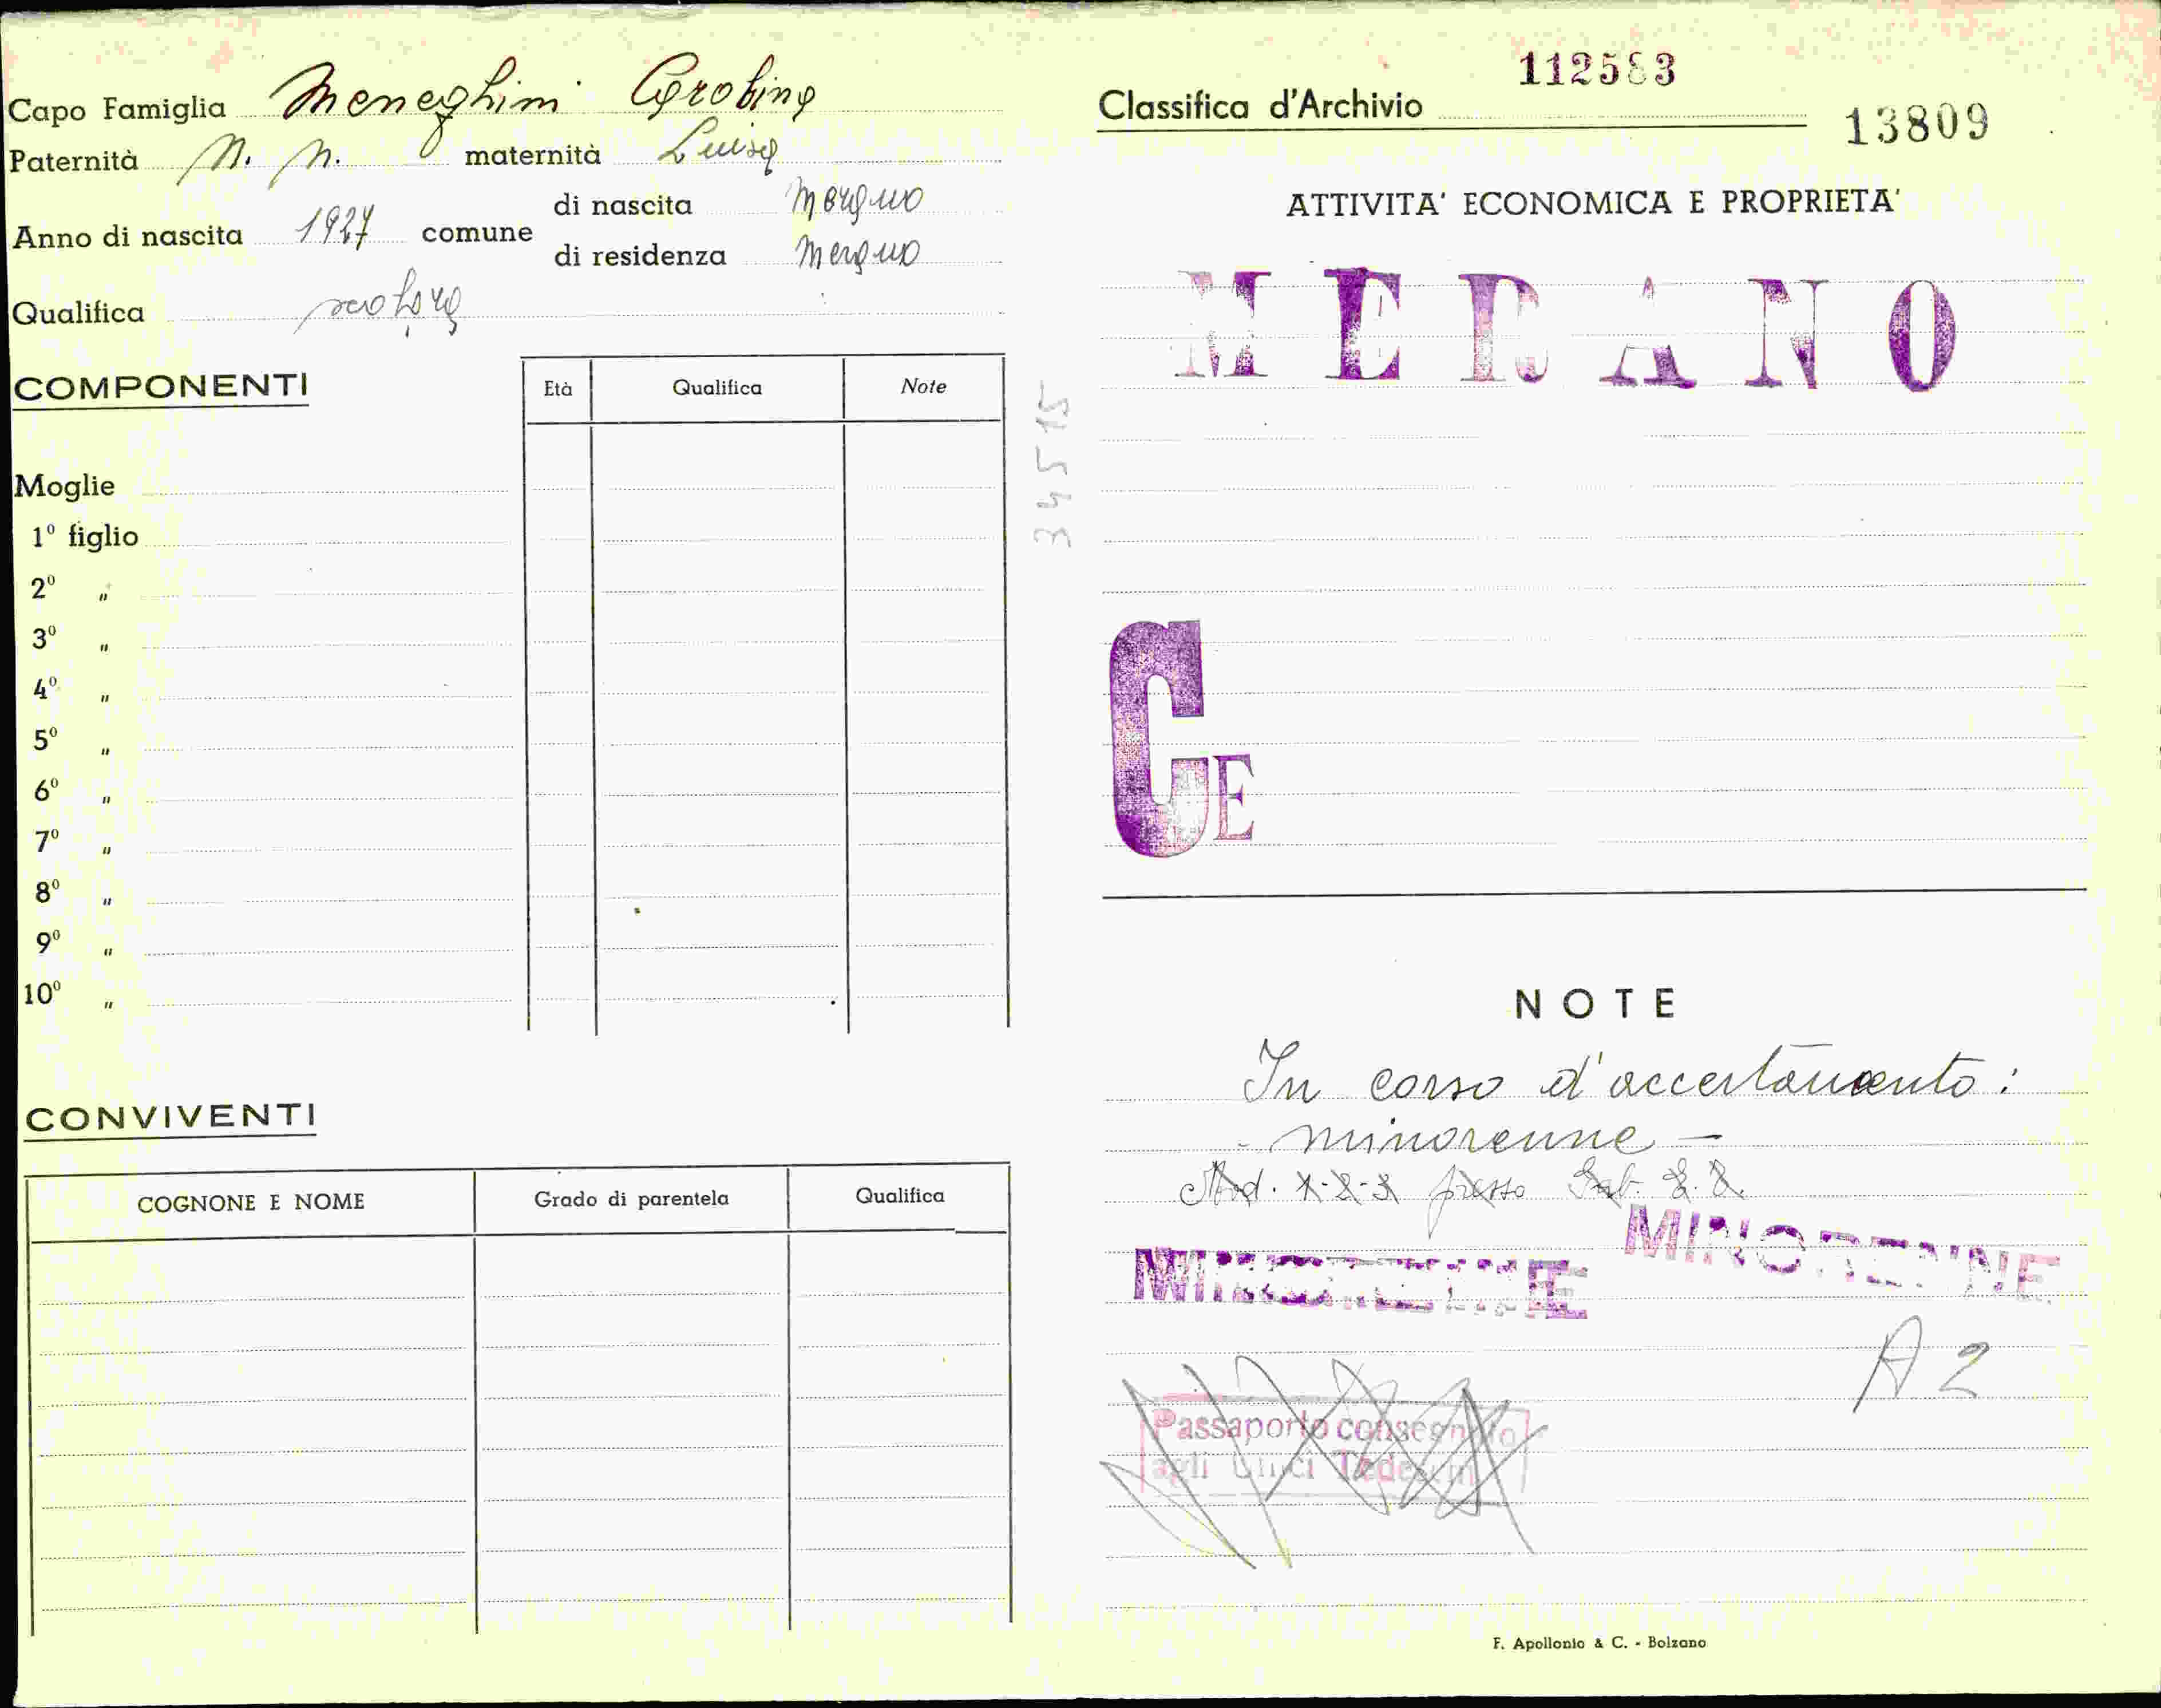 Capo Famiglia Meneghini Carolina
Paternità N. N. maternità Luisa
Anno di nascita 1927 comune di nascita Merano
di residenza Merano
Qualifica scolara
COMPONENTI
Età Qualifica Note
Moglie
1º figlio
2º "
3º "
4º "
5º "
6º "
7º "
8º "
9º "
10º "
CONVIVENTI
COGNONE E NOME Grado di parentela Qualifica
34515
112583
Classifica d'Archivio
13809
ATTIVITA' ECONOMICA E PROPRIETA'
MERANO
CE
NOTE
In corso d'accertamento:
- minorenne -
Mod. 1-2-3 presso
MINORENNE MINORENNE
A 2
Passaporto consegnato
agli Uffici Tedeschi
F. Apollonio & C. - Bolzano